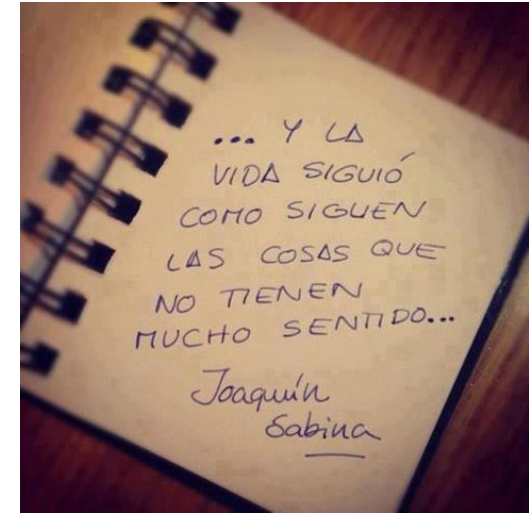 ... Y LA
VIDA SIGUIÓ
COMO SIGUEN
LAS COSAS QUE
NO TIENEN
MUCHO SENTIDO...
Joaquín
Sabina